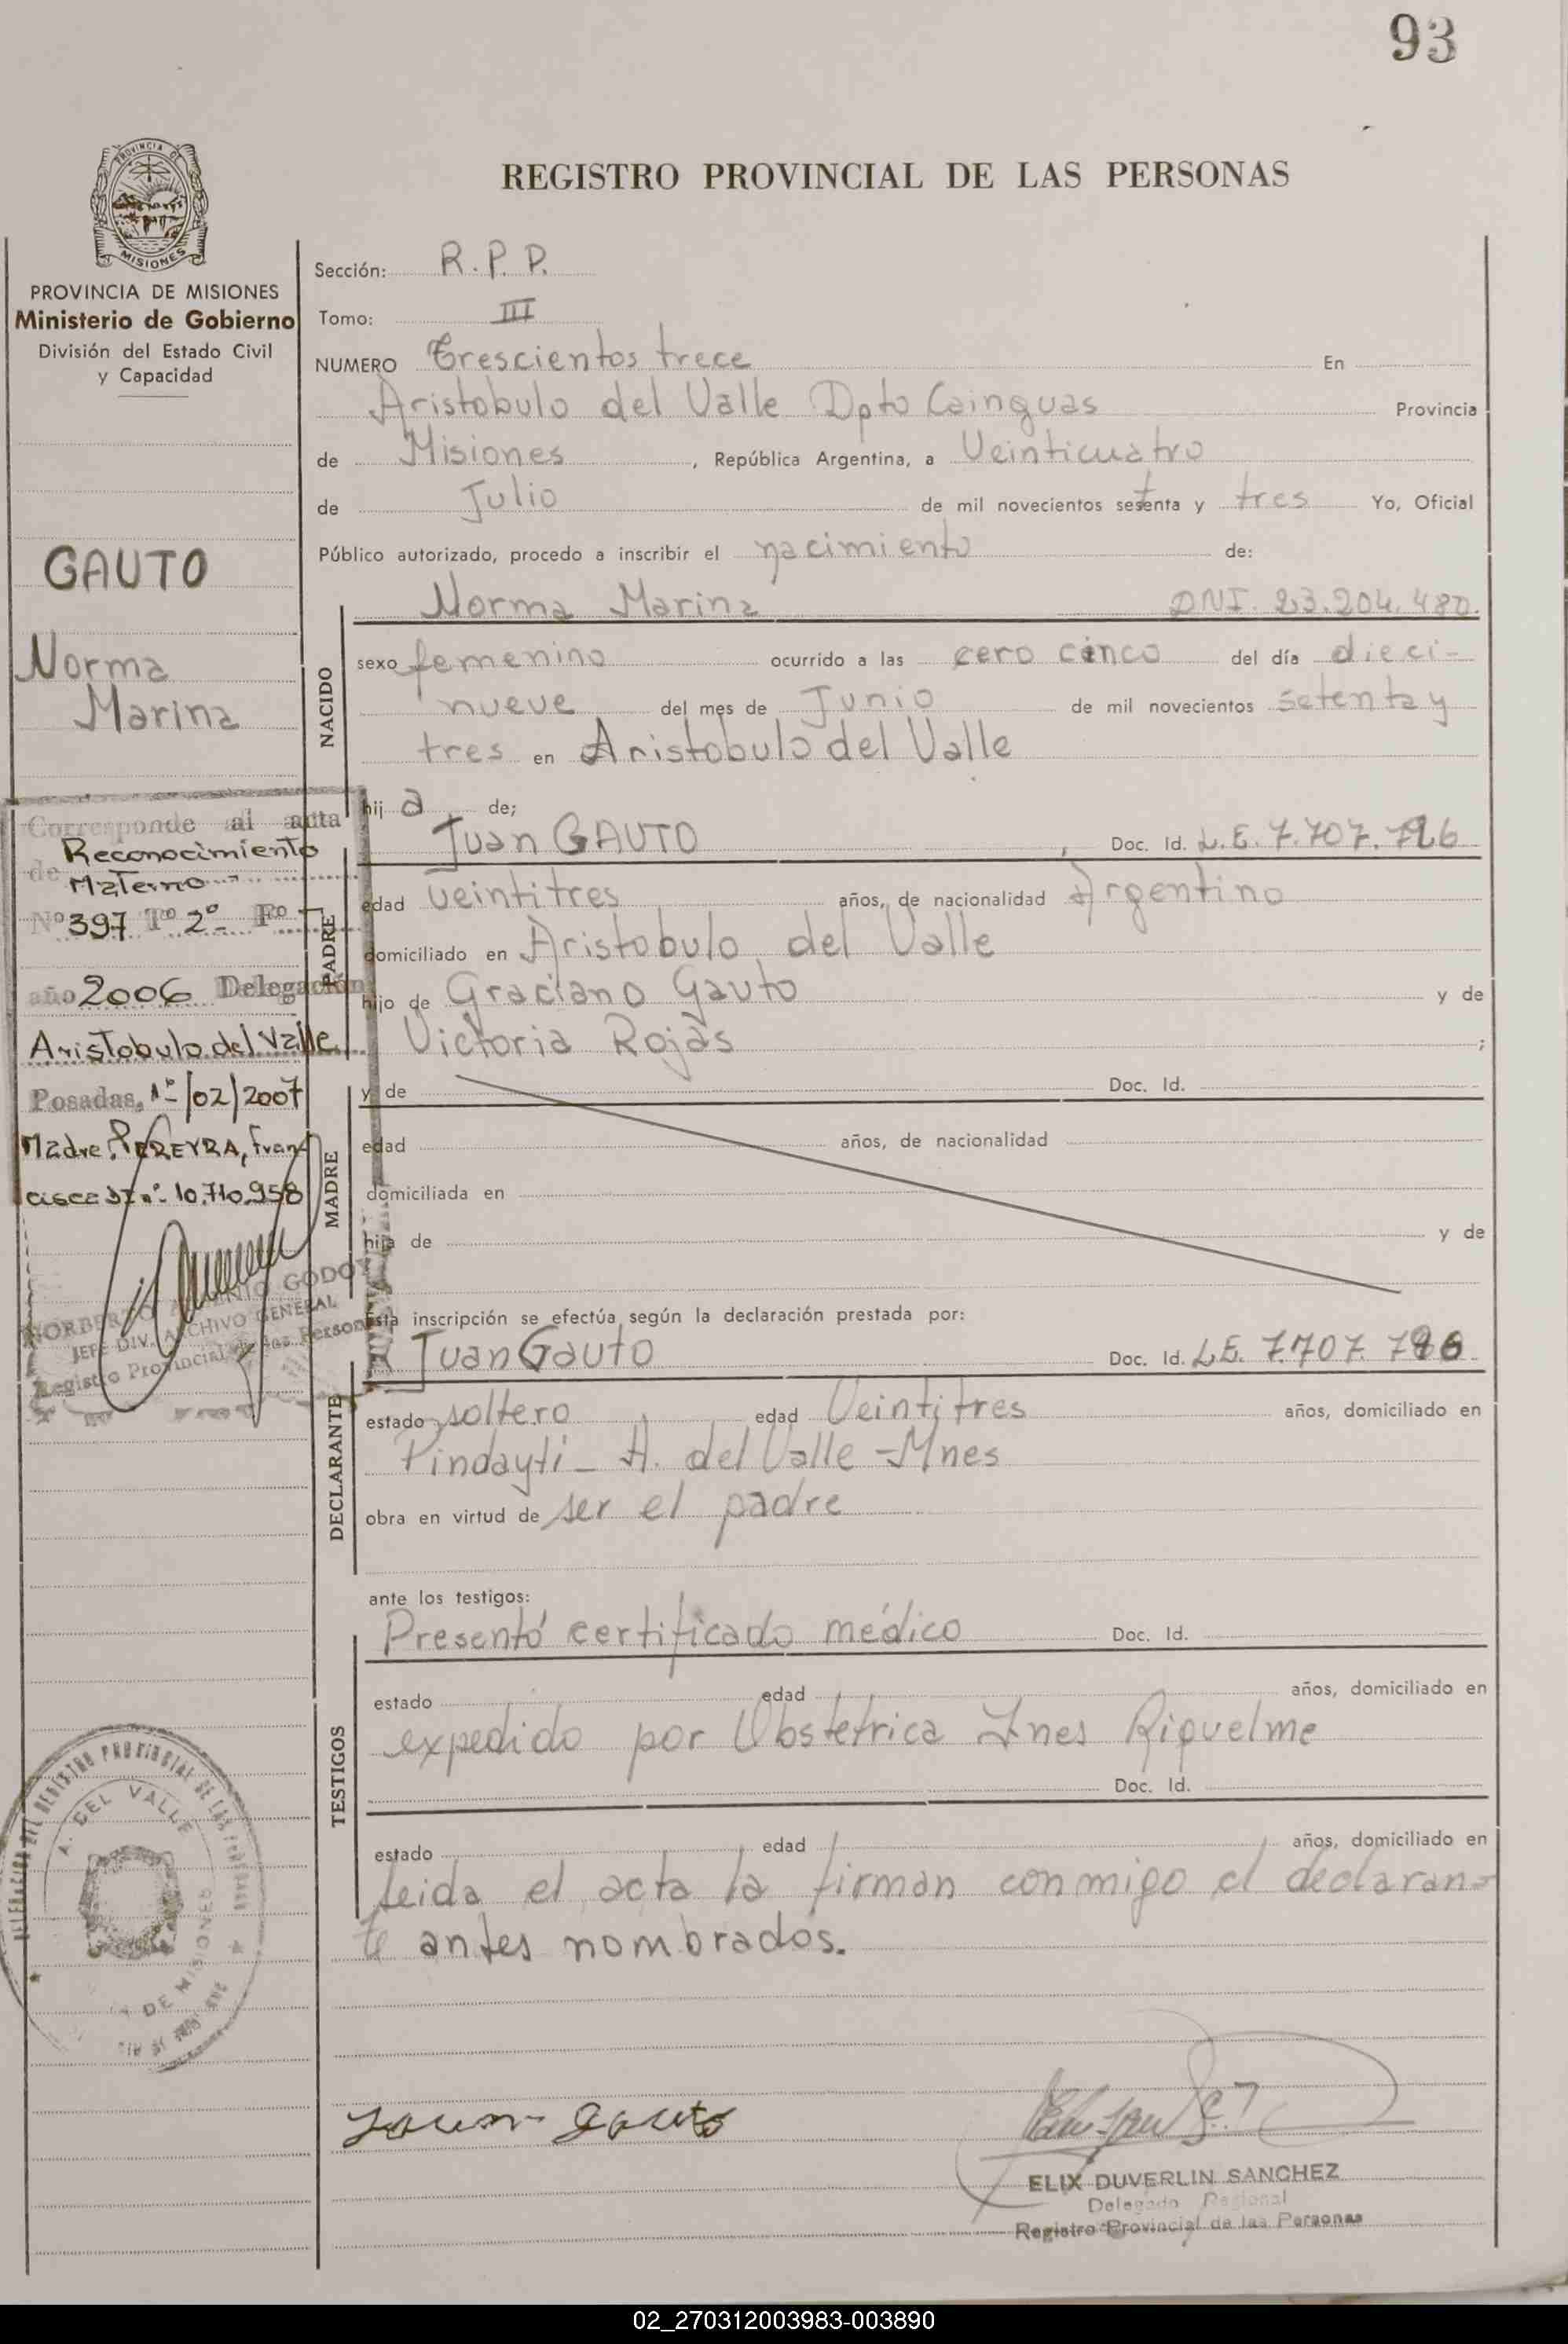 93
PROVINCIA DE
MISIONES
REGISTRO PROVINCIAL DE LAS PERSONAS
PROVINCIA DE MISIONES
Ministerio de Gobierno
División del Estado Civil
y Capacidad
GAUTO
Norma
Marina
Corresponde al acta
de Reconocimiento
Materno
Nº 397 Tº 2º Fº
año 2006 Delegación
Aristobulo del Valle
Posadas, 1º/02/2007
Madre: PEREYRA, Fran
cisca DI nº 10.710.958
NORBERTO GODOY
JEFE DIV. ARCHIVO GENERAL
Registro Provincial de las Personas
A. DEL VALLE
DE MISIONES
Sección: R.P.P.
Tomo: III
NUMERO Trescientos trece En
Aristobulo del Valle Dpto Cainguas Provincia
de Misiones, República Argentina, a Veinticuatro
de Julio de mil novecientos setenta y tres Yo, Oficial
Público autorizado, procedo a inscribir el nacimiento de:
NACIDO
Norma Marina DNI. 23.204.480.
sexo femenino ocurrido a las cero cinco del día dieci-
nueve del mes de Junio de mil novecientos setenta y
tres en Aristobulo del Valle
hij a de;
PADRE
Juan GAUTO, Doc. Id. L.E. 7.707.
edad veintitres años, de nacionalidad Argentino
domiciliado en Aristobulo del Valle
hijo de Graciano Gauto y de
Victoria Rojas ;
MADRE
y de Doc. Id.
edad años, de nacionalidad
domiciliada en
hija de y de
Esta inscripción se efectúa según la declaración prestada por:
DECLARANTE
Juan Gauto Doc. Id. L.E. 7.707.
estado soltero edad Veintitres años, domiciliado en
Pindayti - A. del Valle - Mnes
obra en virtud de ser el padre
ante los testigos:
TESTIGOS
Presentó certificado médico Doc. Id.
estado edad años, domiciliado en
expedido por Obstetrica Ines Riquelme
Doc. Id.
estado edad años, domiciliado en
Leida el acta la firman conmigo el declaran-
te antes nombrados.
Juan Gauto
ELIX DUVERLIN SANCHEZ
Delegado Regional
Registro Provincial de las Personas
02_270312003983-003890